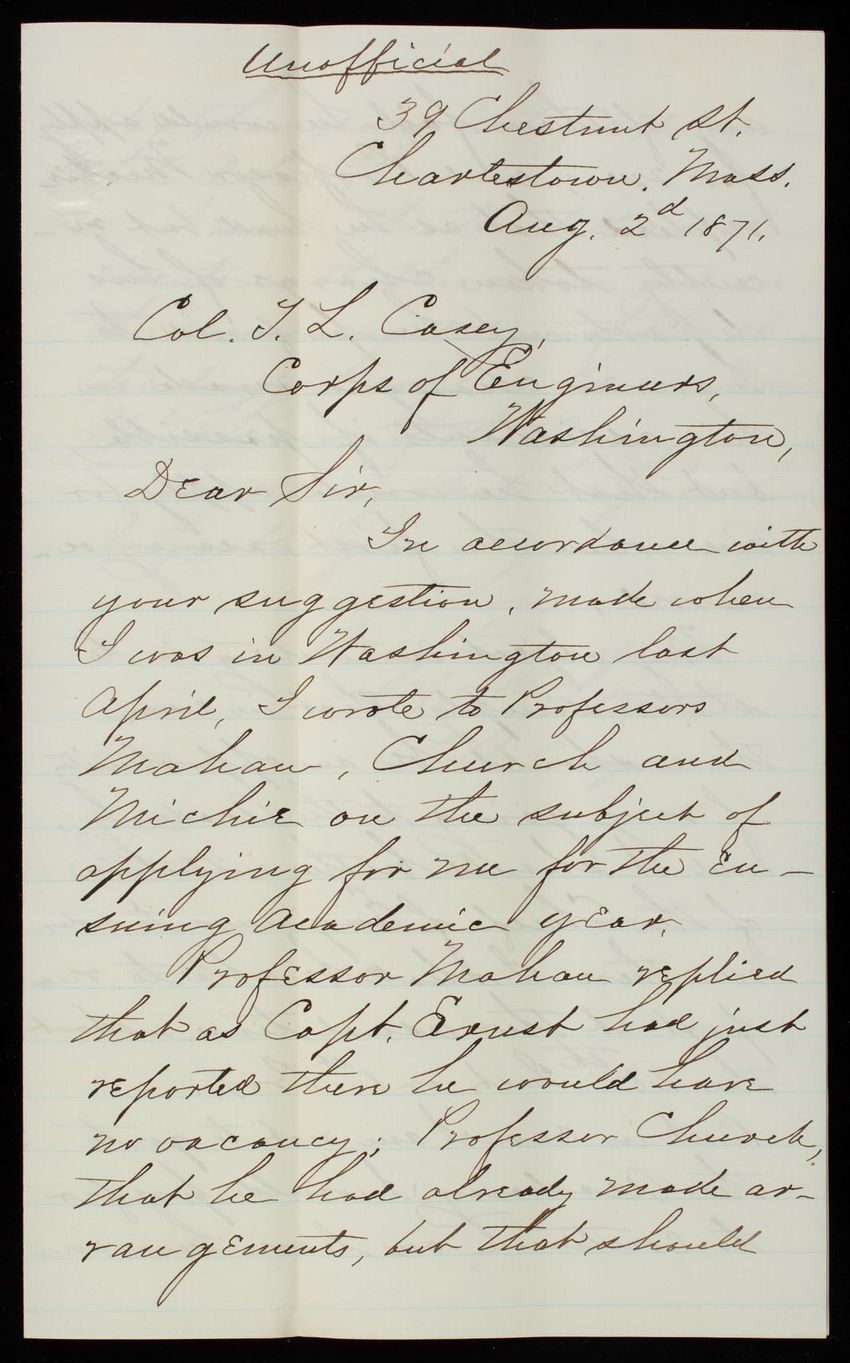 Unofficial
39 Chestnut St.
Charlestown. Mass.
Aug. 2d 1871.
Col. T. L. Casey,
Corps of Engineers,
Washington,
Dear Sir,
In accordance with
your suggestion, made when
I was in Washington last
April, I wrote to Professors
Mahan, Church and
Michie on the subject of
applying for me for the en-
suing academic year.
Professor Mahan replied
that as Capt. Ernst had just
reported there he would have
no vacancy; Professor Church,
that he had already made ar-
rangements, but that should